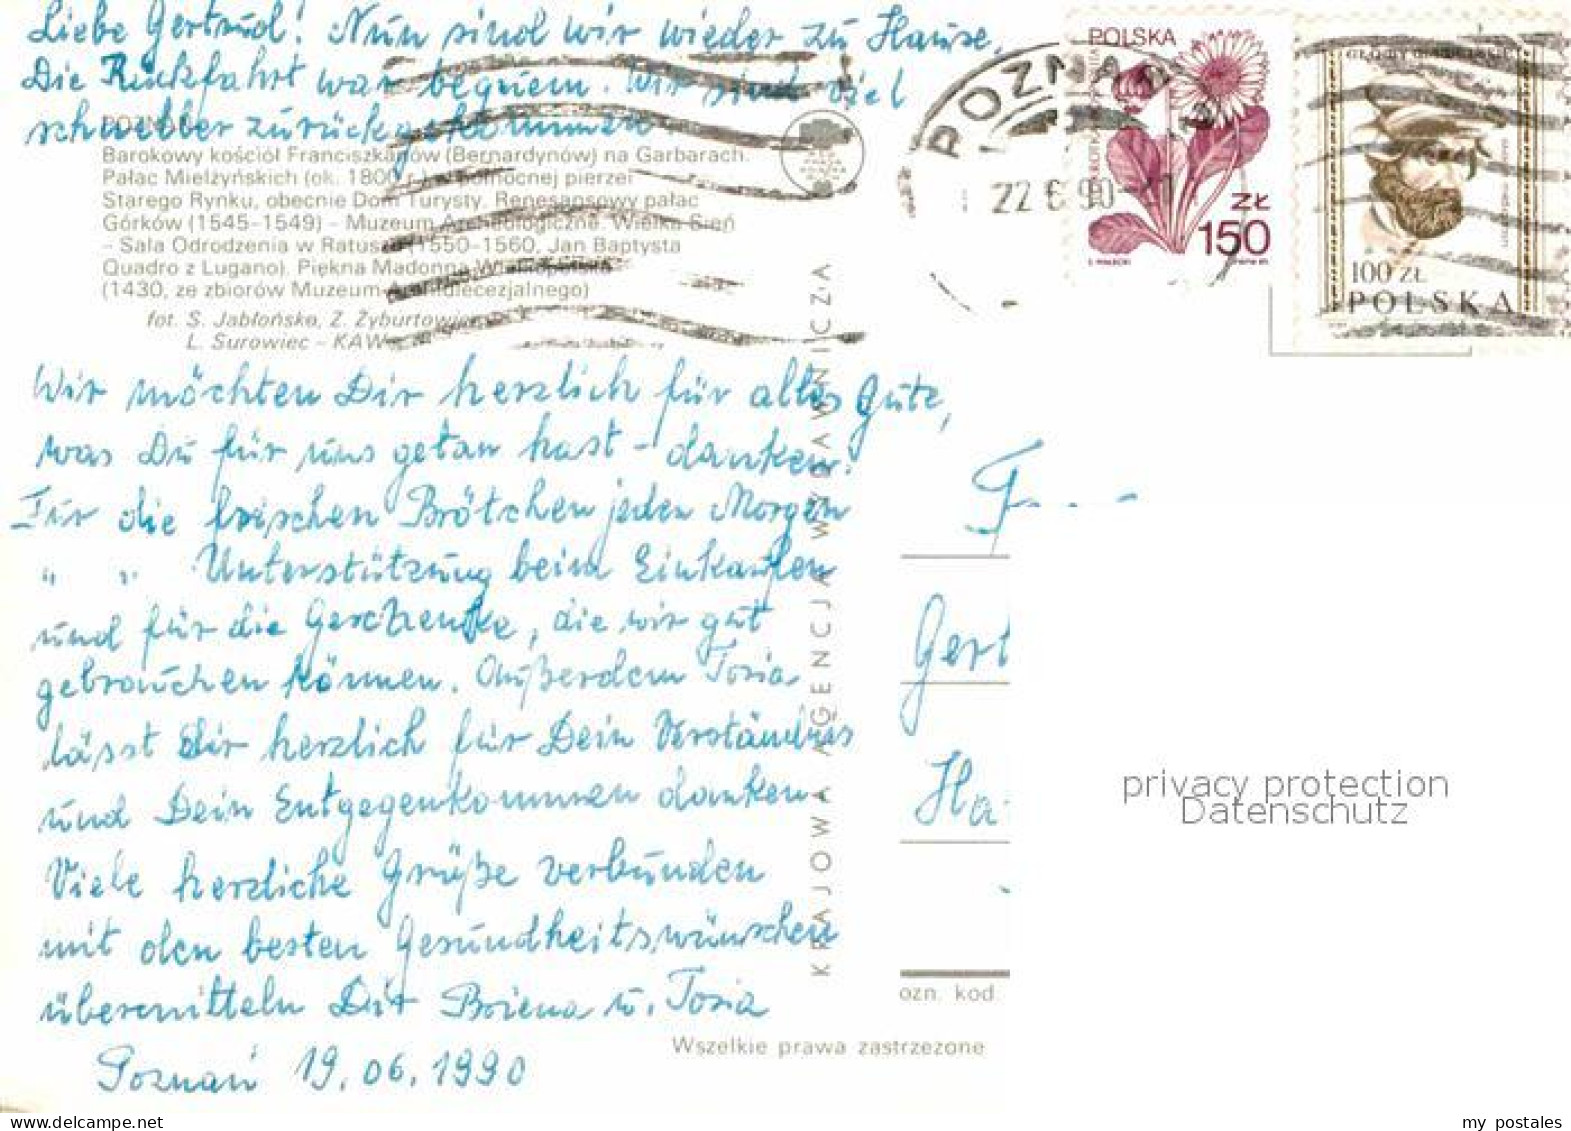 Liebe Gertrud! Nun sind wir wieder zu Hause.
Die Rückfahrt war bequem. Wir sind viel
schneller zurückgekommen
POZNAŃ
Barokowy kościół Franciszkanów (Bernardynów) na Garbarach.
Pałac Mielżyńskich (ok. 1800 r.) w północnej pierzei
Starego Rynku, obecnie Dom Turysty. Renesansowy pałac
Górków (1545-1549) - Muzeum Archeologiczne. Wielka Sień
- Sala Odrodzenia w Ratuszu (1550-1560, Jan Baptysta
Quadro z Lugano). Piękna Madonna Wielkopolska
(1430, ze zbiorów Muzeum Archidiecezjalnego)
fot. S. Jabłońska, Z. Żyburtowicz
L. Surowiec - KAW
POZNAŃ
22 6 90
POLSKA
150 ZŁ
100 ZŁ
POLSKA
Wir möchten Dir herzlich für alles Gute,
was Du für uns getan hast - danken.
Für die frischen Brötchen jeden Morgen
" " Unterstützung beim Einkaufen
und für die Geschenke, die wir gut
gebrauchen können. Außerdem Tosia
lässt Dir herzlich für Dein Verständnis
und Dein Entgegenkommen danken.
Viele herzliche Grüße verbunden
mit den besten Gesundheitswünschen
übermitteln Dir Bożena u. Tosia
Poznań 19.06.1990
KRAJOWA AGENCJA WYDAWNICZA
F
Gert
Ha
ozn. kod.
Wszelkie prawa zastrzeżone
privacy protection
Datenschutz
my postales